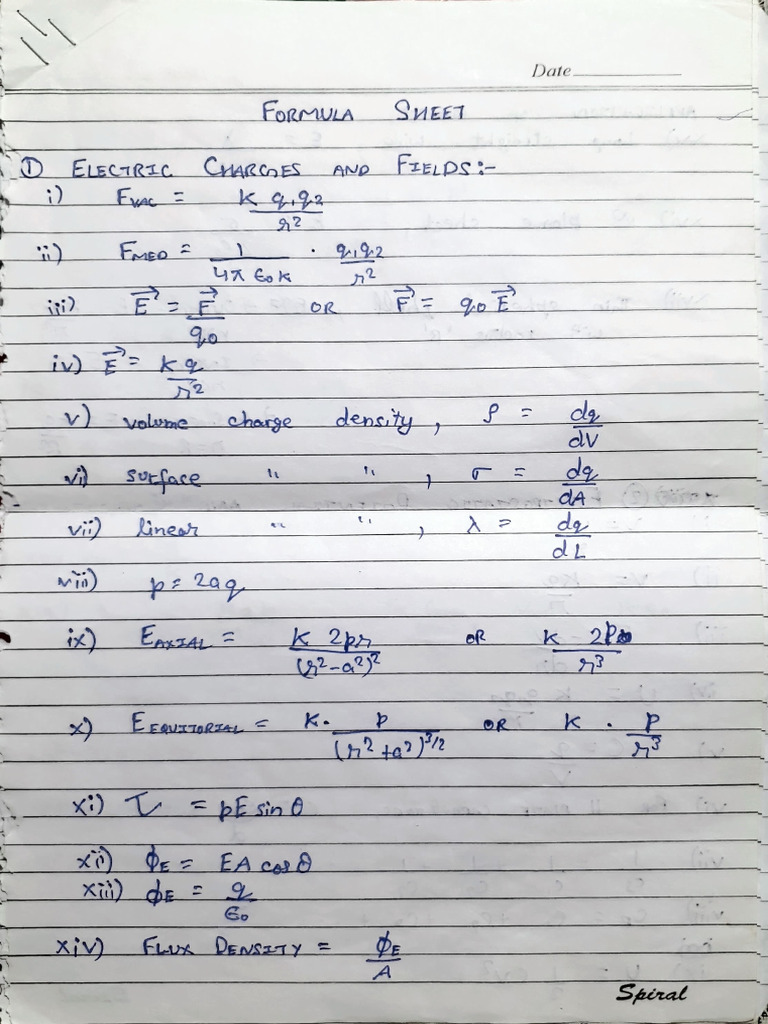 Date
FORMULA SHEET
① ELECTRIC CHARGES AND FIELDS:-
i) F_VAC = K q₁q₂ / r²
ii) F_MED = 1 / 4π ε₀ k · q₁q₂ / r²
iii) E⃗ = F⃗ / q₀ OR F⃗ = q₀ E⃗
iv) E⃗ = K q / r²
v) volume charge density, ρ = dq / dV
vi) surface " " , σ = dq / dA
vii) linear " " , λ = dq / dL
viii) p = 2aq
ix) E_AXIAL = K 2pr / (r² - a²)² OR K 2P / r³
x) E_EQUITORIAL = K · p / (r² + a²)^3/2 OR K · p / r³
xi) τ = pE sin θ
xii) ϕ_E = EA cos θ
xiii) ϕ_E = q / ε₀
xiv) FLUX DENSITY = ϕ_E / A
Spiral